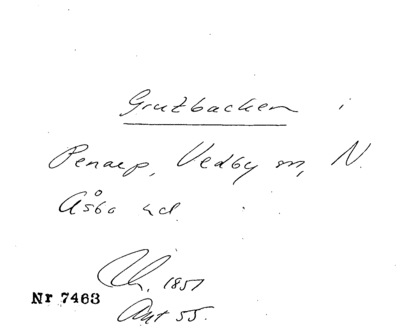 Grutbacken i
Penarp, Vedby sn, N.
Åsbo hd.
1857
Nr 7463
Ant 55.